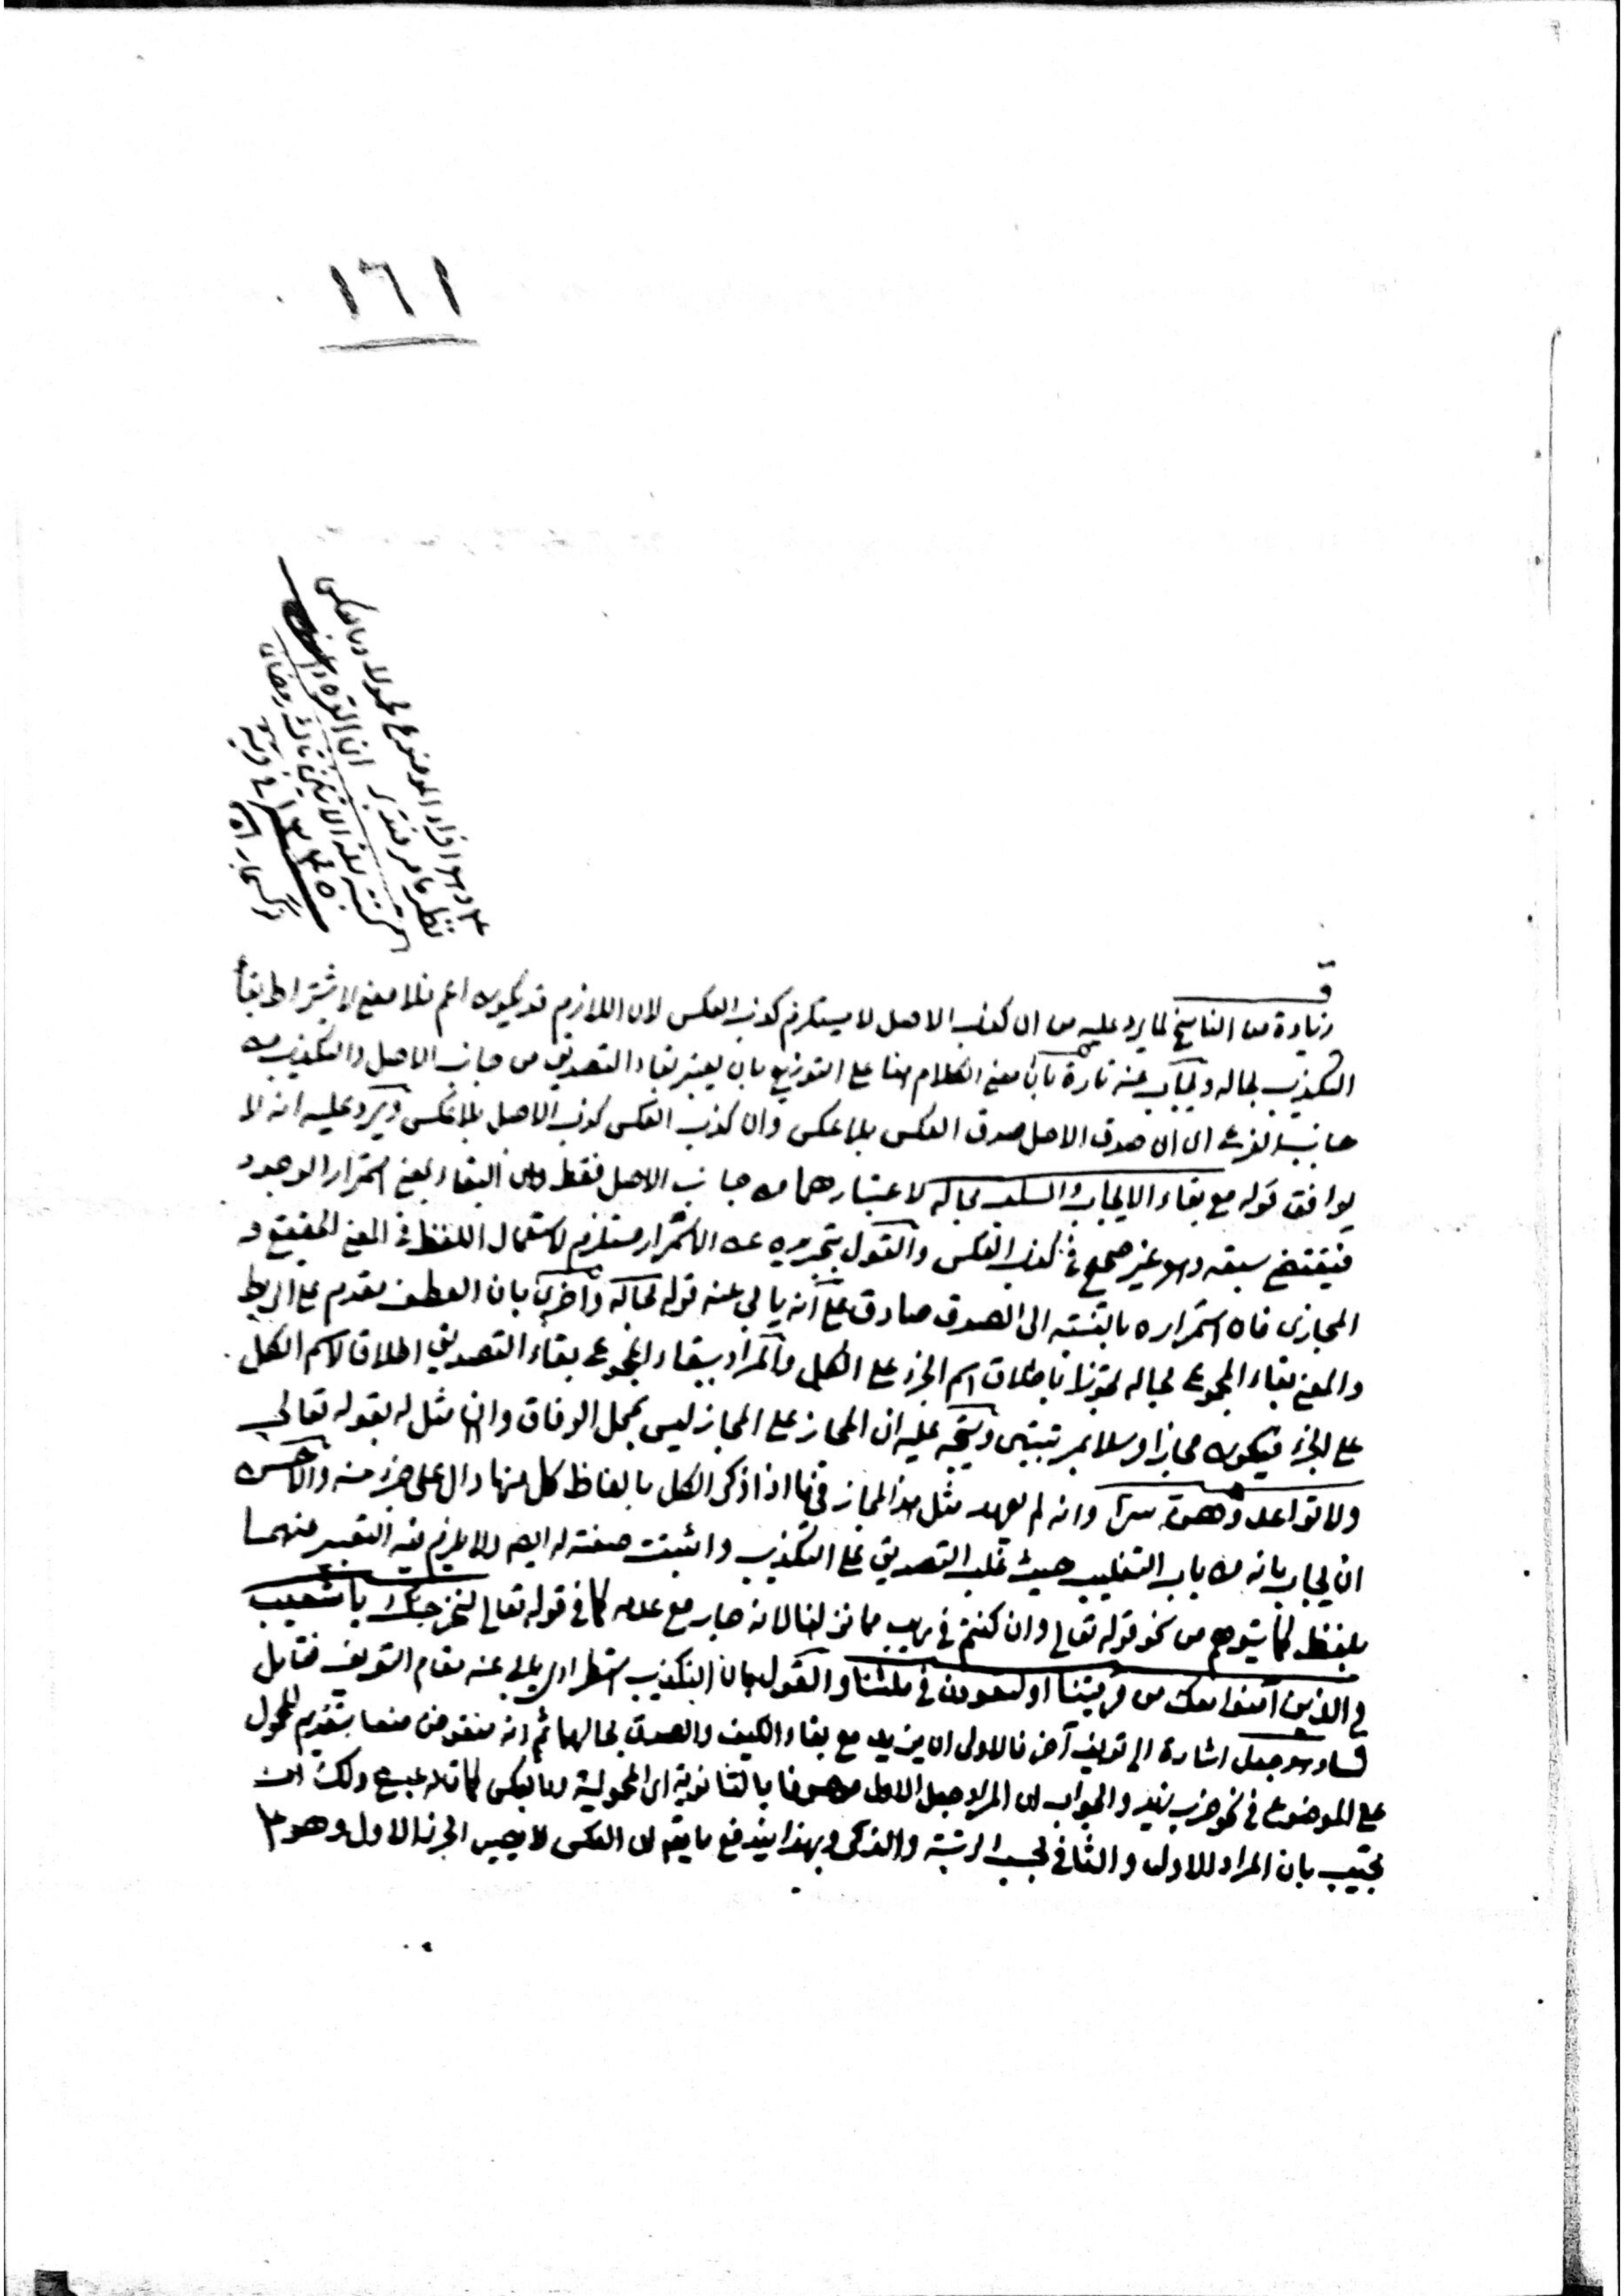 ١٦١
زيادة من الناسخ لما يرد عليه من ان كذب الاصل لا يستلزم كذب العكس لان اللازم قد يكون اعم فلا معنى لاشتراط بقاء
التكذيب بحاله ويجاب عنه تارة بان معنى الكلام هنا على التوزيع بان يعتبر بقاء التصديق من جانب الاصل والتكذيب من
جانب الفرع اى ان صدق الاصل صدق العكس بلا عكس وان كذب العكس كذب الاصل بلا عكس ويرد عليه انه لا
يوافق قوله مع بقاء الايجاب والسلب بحاله لاعتبارهما من جانب الاصل فقط وان البقاء بمعنى استمرار الوجود
فيقتضى سبقه وهو غير صحيح فى كذب العكس والقول بتجريده عن الاستمرار مستلزم لاستعمال اللفظ فى المعنى الحقيقى و
المجازى فان استمراره بالنسبة الى الصدق صادق على انه يابى عنه قوله بحاله واخرى بان العطف مقدم على الربط
والمعنى بقاء المجموع بحاله تجوزا باطلاق اسم الجزء على الكل والمراد ببقاء المجموع بقاء التصديق اطلاقا لاسم الكل
على الجزء فيكون مجازا مرسلا بمرتبتين ويتجه عليه ان المجاز على المجاز ليس بمحل الوفاق وان مثل له بقوله تعالى
ولا تواعدوهن سرا وانه لم يعهد مثل هذا المجاز فيما اذا ذكر الكل بالفاظ كل منها دال على جزء منه والاحسن
ان يجاب بانه من باب التغليب حيث غلب التصديق على التكذيب واثبتت صفته له ايض ولا يلزم فيه التعبير عنهما
بلفظ كما يتوهم من نحو قوله تعالى وان كنتم فى ريب مما نزلنا لانه جار مع عدمه كما فى قوله تعالى لنخرجنك يا شعيب
والذين آمنوا معك من قريتنا او لتعودن فى ملتنا والقول بان التكذيب استطرادى يابى عنه مقام التعريف فتامل
جعل اشارة الى تعريف آخر فالاولى ان يزيد مع بقاء الكيف والصدق بحالهما ثم انه منقوض منعا بتقديم المحمول
على الموضوع فى نحو ضرب زيد والجواب ان المراد جعل الاول موصوفا بالثانوية اى المحمولية وبالعكس كما قاله عبدع ولك ان
تجيب بان المراد الاول والثانى بحسب الرتبة والذكر وبهذا يندفع ما يتوهم ان العكس لا يصير الجزء الاول وهو
افراد الموضوع محمولا وبالعكس